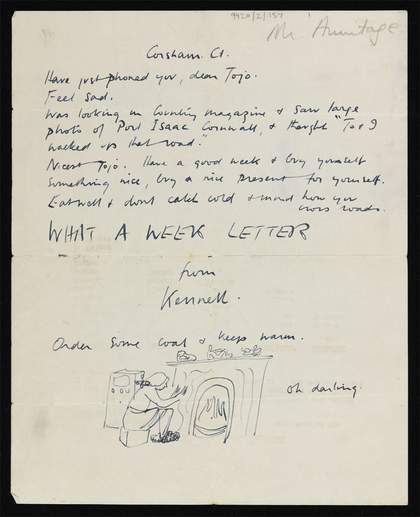 9920/2/157
Mr Armitage
Corsham. Ct.
Have just phoned you, dear Tojo.
Feel sad.
Was looking in Country magazine & saw large
photo of Port Isaac Cornwall, & thought "To & I
walked up that road."
Nicest Tojo. Have a good week & buy yourself
something nice, buy a nice present for yourself.
Eat well & dont catch cold & mind how you
cross roads.
WHAT A WEEK LETTER
from
Kenneth.
Order some coal & keep warm.
oh darling.